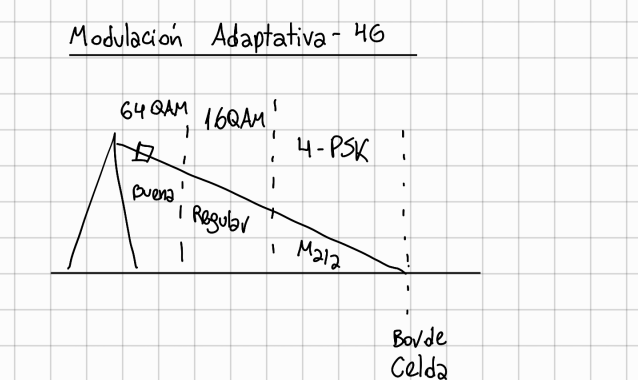 Modulación Adaptativa - 4G
64 QAM
16QAM
4-PSK
Buena
Regular
Mala
Borde
Celda